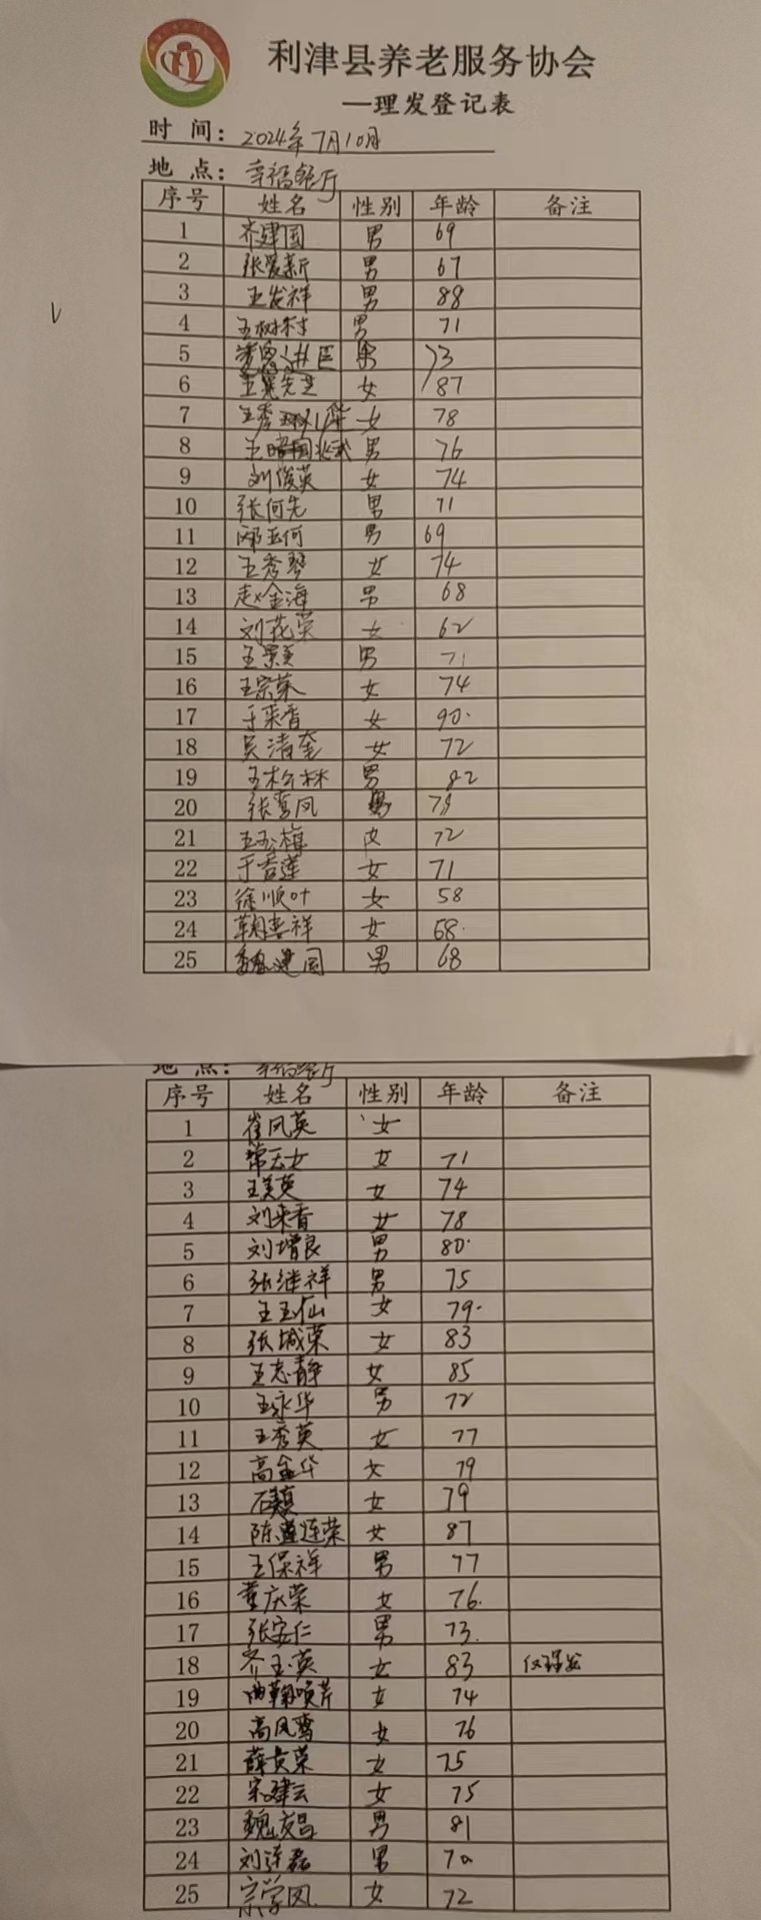 利津县养老服务协会
—理发登记表
时 间: 2024年7月10日
地 点: 幸福餐厅
序号 姓名 性别 年龄 备注
1 齐建国 男 69
2 张爱新 男 67
3 王发祥 男 88
4 王树村 男 71
5 男 73
6 女 87
7 王秀 女 78
8 王 男 76
9 刘俊英 女 74
10 张何先 男 71
11 邴玉何 男 69
12 王秀琴 女 74
13 赵金海 男 68
14 刘花荣 女 62
15 王景美 男 71
16 王宗菜 女 74
17 于来香 女 90.
18 吴清奎 女 72
19 王松林 男 82
20 张鸾凤 79
21 王玉梅 女 72
22 于香莲 女 71
23 徐顺叶 女 58
24 鞠喜祥 女 68.
25 魏建国 男 68
地 点: 幸福餐厅
序号 姓名 性别 年龄 备注
1 崔凤英 女
2 常玉女 女 71
3 王美英 女 74
4 刘来香 女 78
5 刘增良 男 80.
6 张继祥 男 75
7 王玉仙 女 79.
8 张城荣 女 83
9 王志静 女 85
10 王永华 男 72
11 王秀英 女 77
12 高金华 女 79
13 石 女 79
14 陈莲荣 女 87
15 王保祥 男 77
16 董庆荣 女 76.
17 张安仁 男 73.
18 齐玉英 女 83
19 曲 芹 女 74
20 高凤鸾 女 76
21 薛贞荣 女 75
22 宋建云 女 75
23 魏效昌 男 81
24 刘连磊 男 70
25 宗学凤 女 72